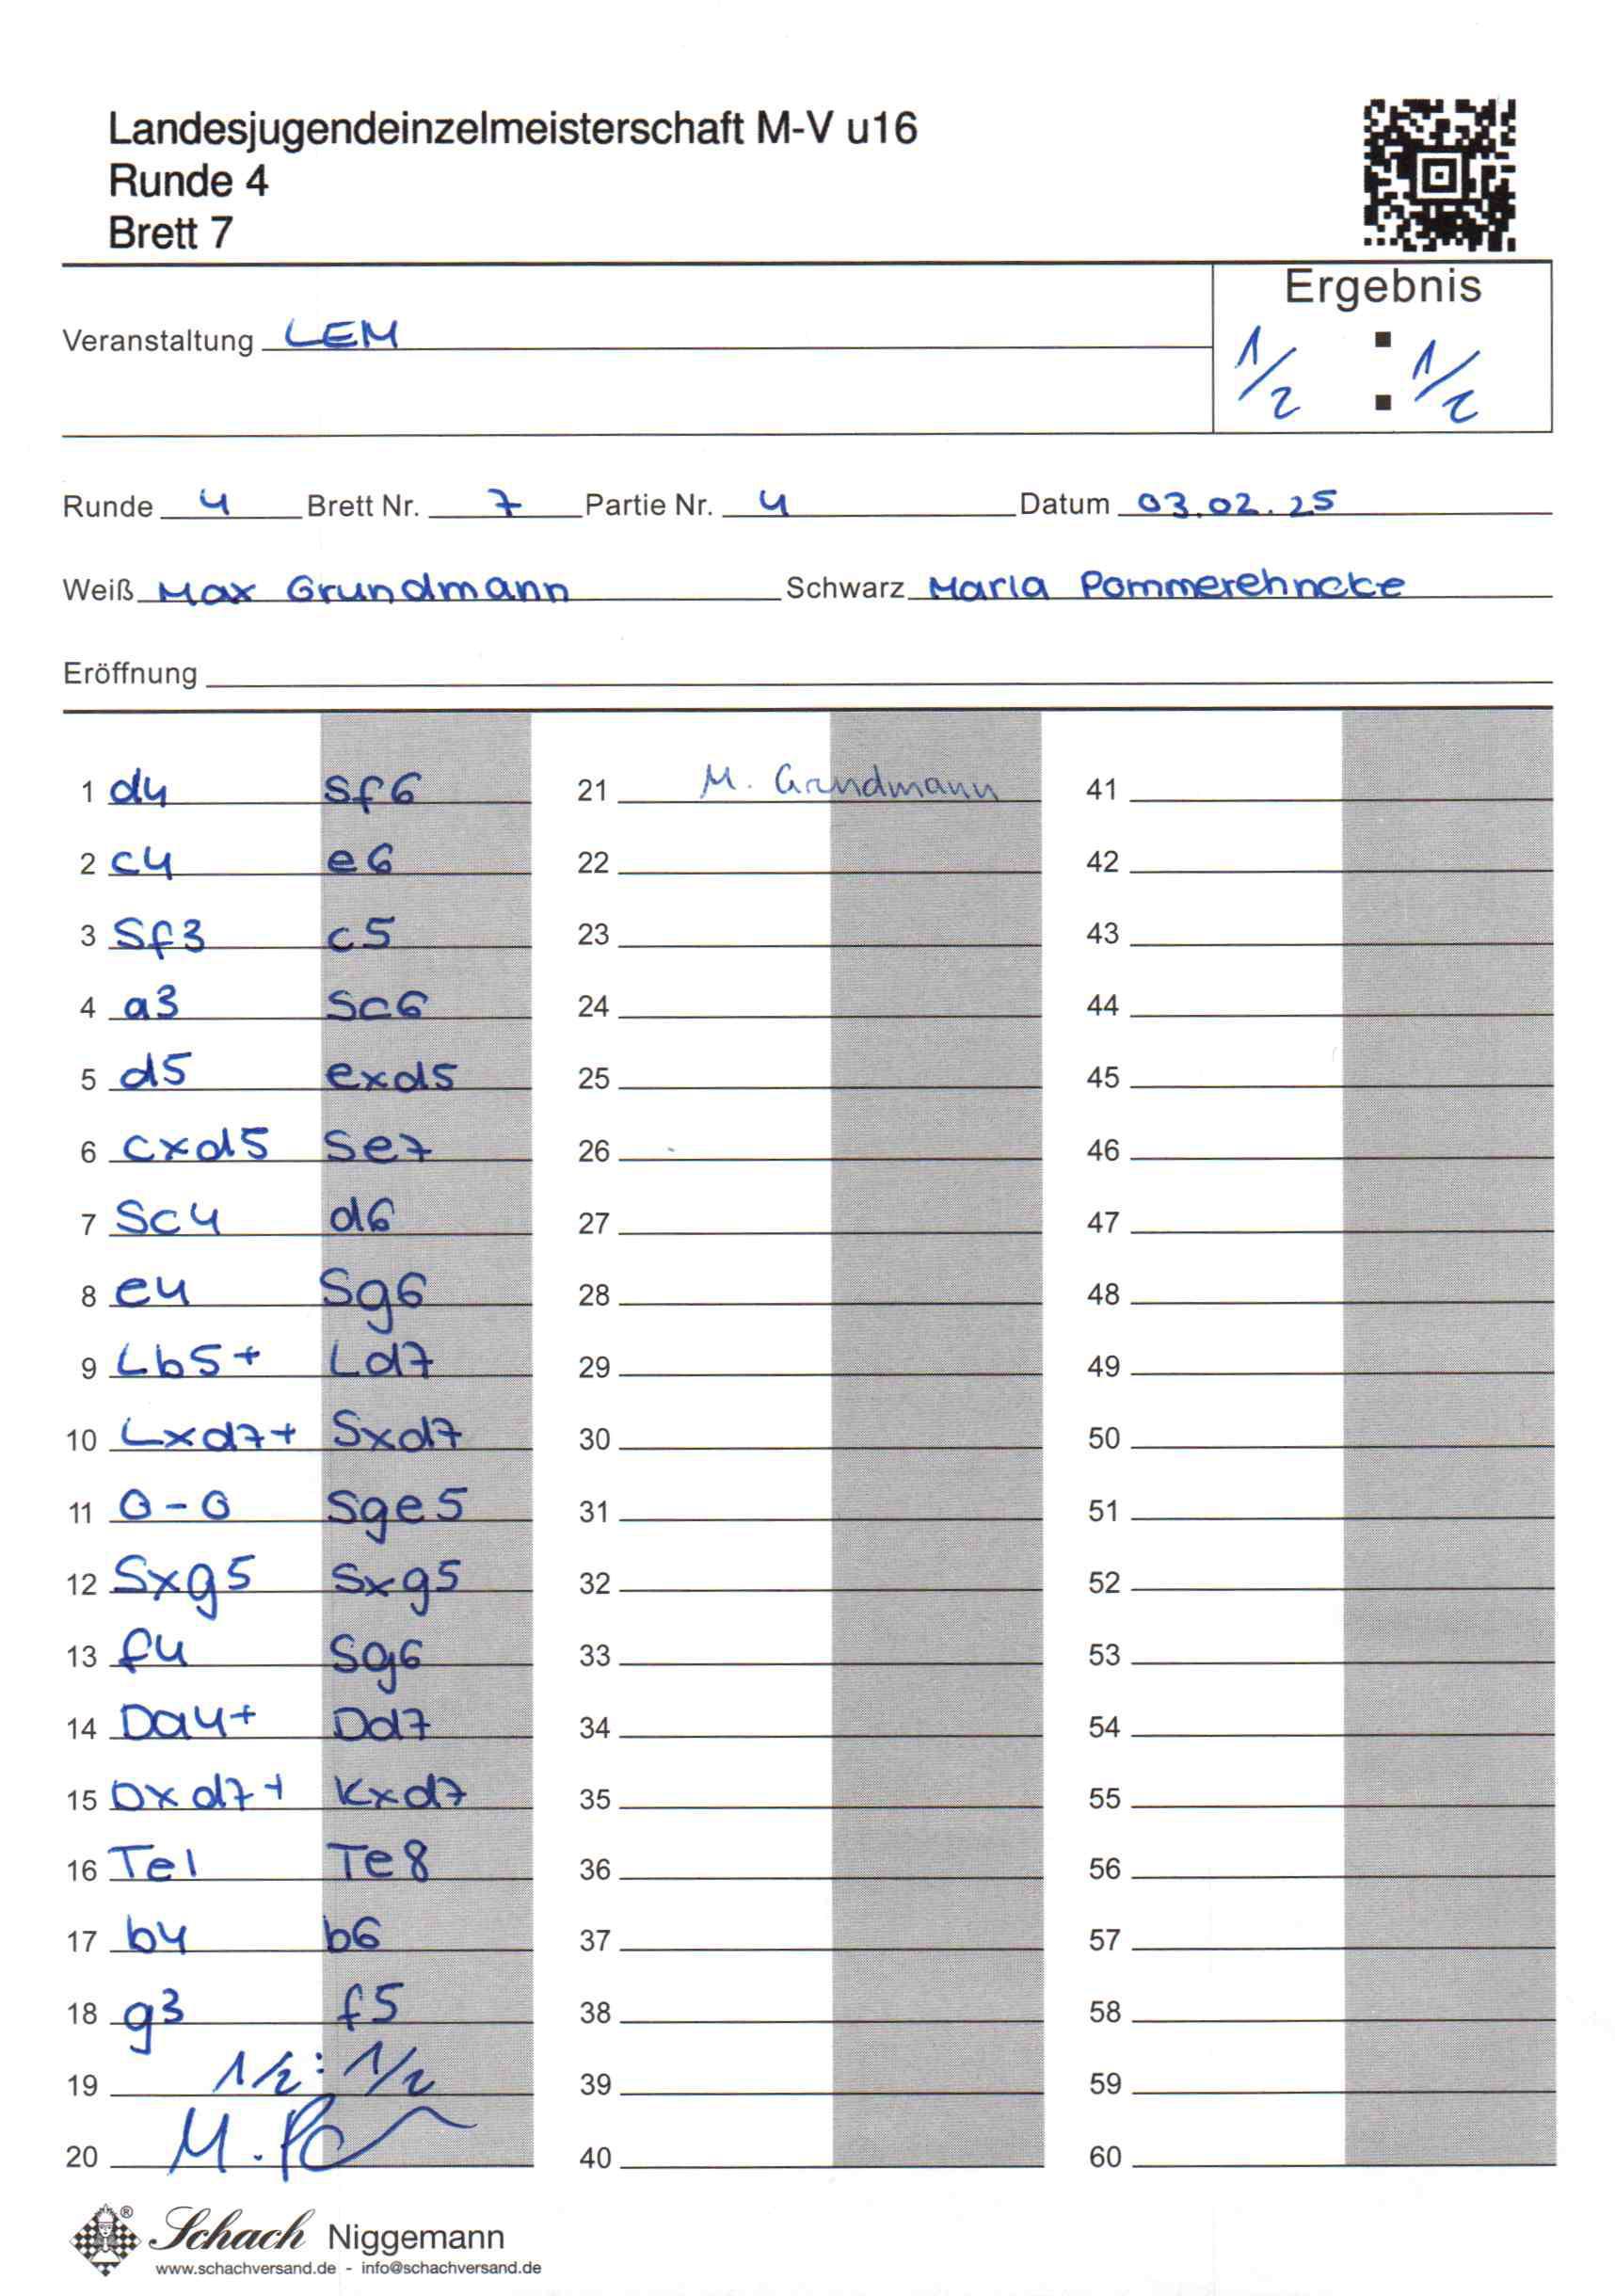 Landesjugendeinzelmeisterschaft M-V u16
Runde 4
Brett 7
Ergebnis
Veranstaltung LEM
1/2 : 1/2
Runde 4 Brett Nr. 7 Partie Nr. 4 Datum 03.02.25
Weiß Max Grundmann Schwarz Marla Pommerehncke
Eröffnung
1 d4 Sf6 21 M. Grundmann 41
2 c4 e6 22 42
3 Sf3 c5 23 43
4 a3 Sc6 24 44
5 d5 exd5 25 45
6 cxd5 Se7 26 46
7 Sc4 d6 27 47
8 e4 Sg6 28 48
9 Lb5+ Ld7 29 49
10 Lxd7+ Sxd7 30 50
11 0-0 Sge5 31 51
12 Sxg5 Sxg5 32 52
13 f4 Sg6 33 53
14 Da4+ Dd7 34 54
15 Dxd7+ Kxd7 35 55
16 Te1 Te8 36 56
17 b4 b6 37 57
18 g3 f5 38 58
19 1/2 : 1/2 39 59
20 M. 40 60
Schach Niggemann
www.schachversand.de - info@schachversand.de